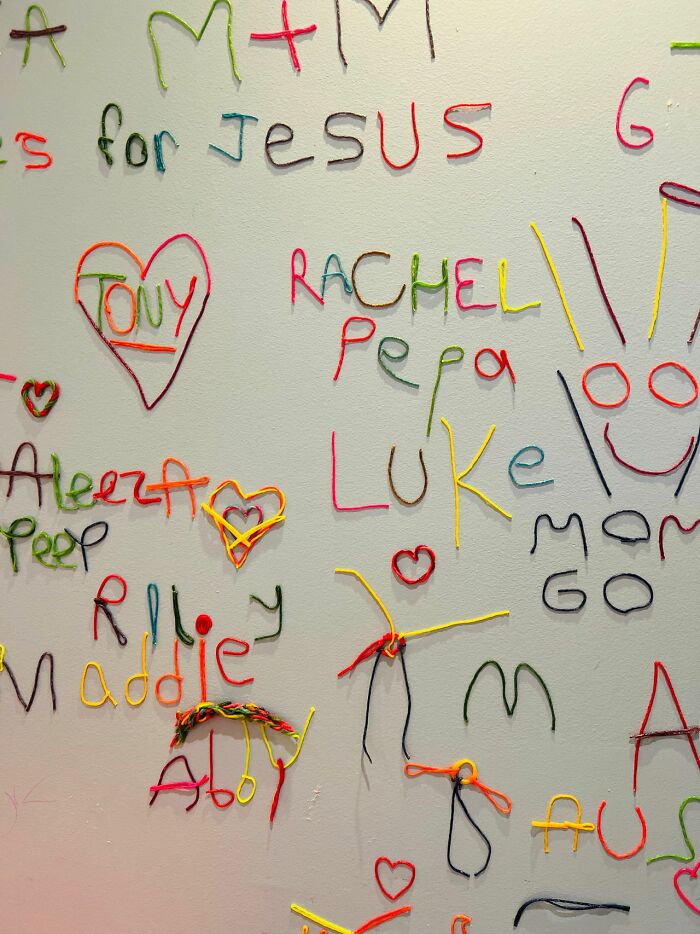 A M+M
s for Jesus G
TONY
RACHEL
Pepa
LUKe
AleezA
Peep
MOM
GO
RIley
Maddie
M A
Abby
AUS